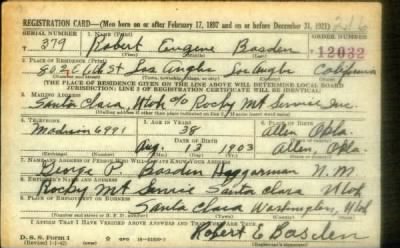 REGISTRATION CARD—(Men born on or after February 17, 1897 and on or before December 31, 1921)
SERIAL NUMBER
1. NAME (Print)
ORDER NUMBER
T 379
Robert Eugene Basden
12032
(First) (Middle) (Last)
2. PLACE OF RESIDENCE (Print)
6th St Los Angeles Los Angeles California
(Number and street) (Town, township, village, or city) (County) (State)
[THE PLACE OF RESIDENCE GIVEN ON THE LINE ABOVE WILL DETERMINE LOCAL BOARD
JURISDICTION; LINE 2 OF REGISTRATION CERTIFICATE WILL BE IDENTICAL]
3. MAILING ADDRESS
Santa Clara, Utah c/o Rocky Mt Service Inc.
4. TELEPHONE
5. AGE IN YEARS
6. PLACE OF BIRTH
Madison 6991
38
Allen Okla.
DATE OF BIRTH
Aug. 13 1903
Allen, Okla.
(Exchange) (Number)
(Mo.) (Day) (Yr.)
7. NAME AND ADDRESS OF PERSON WHO WILL ALWAYS KNOW YOUR ADDRESS
George P. Basden Haggarman N. M.
8. EMPLOYER'S NAME AND ADDRESS
Rocky Mt Service Santa Clara Utah
9. PLACE OF EMPLOYMENT OR BUSINESS
Santa Clara Washington, Utah
(Number and street or R. F. D. number) (Town) (County) (State)
I AFFIRM THAT I HAVE VERIFIED ABOVE ANSWERS AND THAT THEY ARE TRUE.
D. S. S. Form 1
(Revised 1-1-42)
Robert E Basden